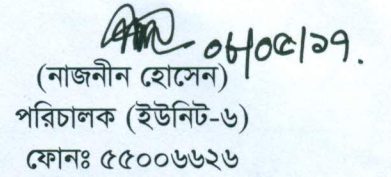 ০৮/০৫/১৭.
(নাজনীন হোসেন)
পরিচালক (ইউনিট-৬)
ফোনঃ ৫৫০০৬৬২৬